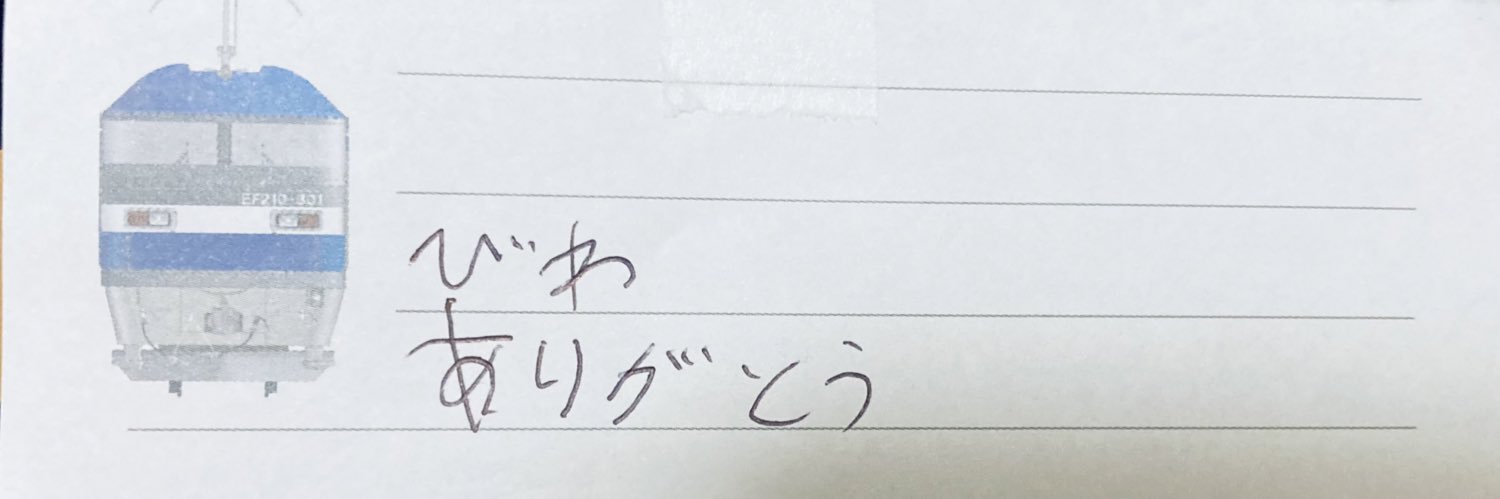 EF210-301
びわ
ありがとう